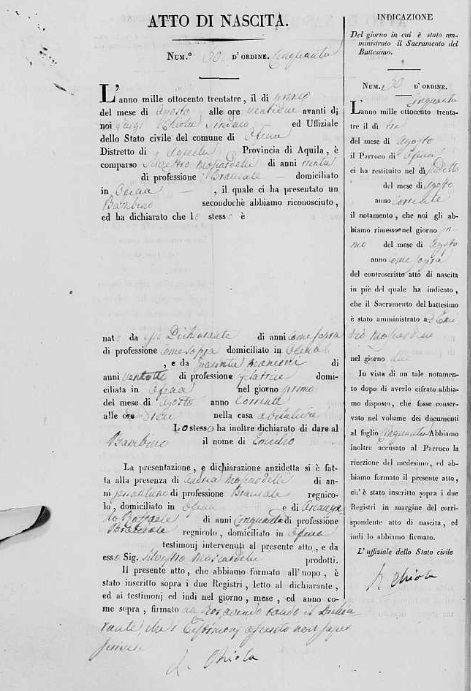 ATTO DI NASCITA.
NUM.° 50 D'ORDINE Cinquanta
L'anno mille ottocento trentatre, il dì primo
del mese di Agosto alle ore avanti di
noi Luigi Chiola Sindaco ed Uffiziale
dello Stato civile del comune di Ofena
Distretto di Aquila Provincia di Aquila, è
comparso Silvestro Moscardelli di anni trenta
di professione Bracciale domiciliato
in Ofena, il quale ci ha presentato un
Bambino secondochè abbiamo riconosciuto,
ed ha dichiarato che lo stesso è
nato da Dichiarante di anni come sopra
di professione come sopra domiciliato in Ofena
, e da di
anni ventotto di professione domi-
ciliata in Ofena nel giorno primo
del mese di Agosto anno Corrente
alle ore nella casa
Lo stesso ha inoltre dichiarato di dare al
Bambino il nome di Emilio
La presentazione, e dichiarazione anzidetta si è fat-
ta alla presenza di Moscardelli di an-
ni di professione Bracciale regnico-
lo, domiciliato in Ofena e di
Raffaele di anni cinquanta di professione
Bracciale regnicolo, domiciliato in Ofena
testimonj intervenuti al presente atto, e da
esso Sig. Silvestro Moscardelli prodotti.
Il presente atto, che abbiamo formato all'uopo, è
stato inscritto sopra i due Registri, letto al dichiarante,
ed ai testimonj ed indi nel giorno, mese, ed anno co-
me sopra, firmato da Noi avendo il Dichia
rante ed i Testimonj non saper
firmare
L. Chiola
INDICAZIONE
Del giorno in cui è stato am-
ministrato il Sacramento del
Battesimo.
NUM. 50 D'ORDINE
Cinquanta
L'anno mille ottocento tren-
tatre il dì tre
di Agosto
il Parroco di Ofena
ci ha restituito nel dì detto
del mese di Agosto
anno Corrente
il notamento, che noi gli ab-
biamo rimesso nel giorno pri
mo del mese di Agosto
anno come sopra
del controscritto atto di nascita
in piè del quale ha indicato,
che il Sacramento del battesimo
è stato amministrato a
nel giorno due
In vista di un tale notamento
dopo di averlo cifrato abbiamo
disposto, che fosse conservato
nel volume dei documenti
al foglio cinquanta Abbiamo
inoltre accusato al Parroco la
ricezione del medesimo, ed ab-
biamo formato il presente atto,
ch'è stato inscritto sopra i due
Registri in margine del corri-
spondente atto di nascita, ed
indi lo abbiamo firmato.
L'uffiziale dello Stato civile
L. Chiola